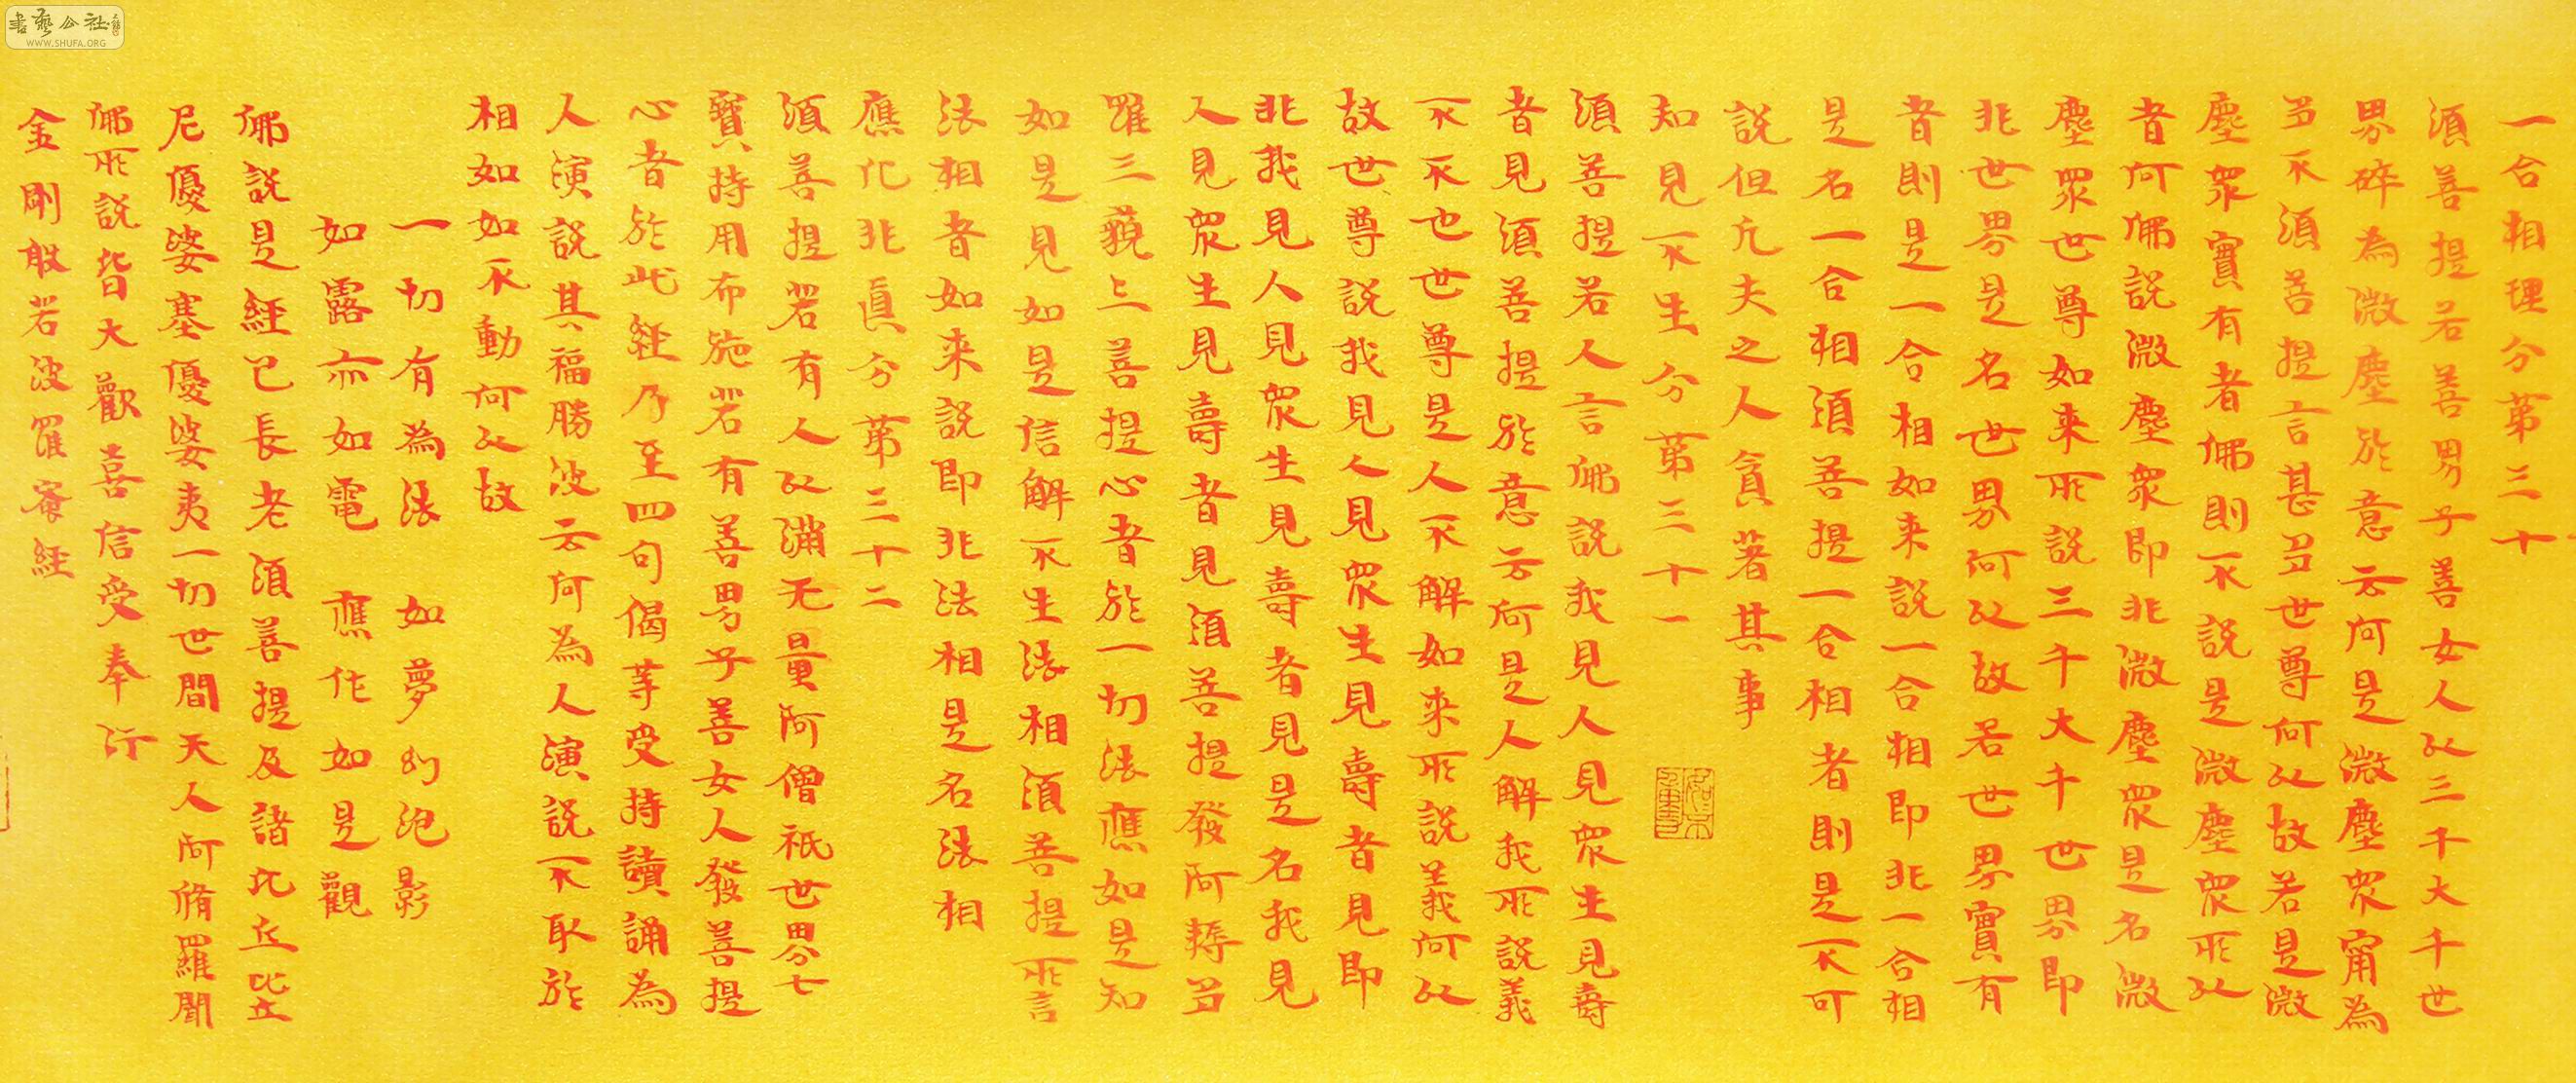 一合相理分第三十
須善提若善男子善女人以三千大千世
界碎為微塵於意云何是微塵衆甯為
多不須善提言甚多世尊何以故若是微
塵衆實有者佛則不說是微塵衆所以
者何佛說微塵衆即非微塵衆是名微
塵衆世尊如来所說三千大千世界即
非世界是名世界何以故若世界實有
者則是一合相如来說一合相即非一合相
是名一合相須善提一合相者則是不可
說但凡夫之人貪著其事
知見不生分第三十一
須善提若人言佛說我見人見衆生見壽
者見須善提於意云何是人解我所說義
不不也世尊是人不解如来所說義何以
故世尊說我見人見衆生見壽者見即
非我見人見衆生見壽者見是名我見
人見衆生見壽者見須善提發阿耨多
羅三藐三善提心者於一切法應如是知
如是見如是信解不生法相須善提所言
法相者如来說即非法相是名法相
應化非真分第三十二
須善提若有人以滿无量阿僧祇世界七
寶持用布施若有善男子善女人發善提
心者於此經乃至四句偈等受持讀誦為
人演說其福勝彼云何為人演說不取於
相如如不動何以故
一切有為法 如夢幻泡影
如露亦如電 應作如是觀
佛說是經已長老須善提及諸比丘比丘
尼優婆塞優婆夷一切世間天人阿脩羅聞
佛所說皆大歡喜信受奉行
金剛般若波羅蜜經
書藝公社
WWW.SHUFA.ORG